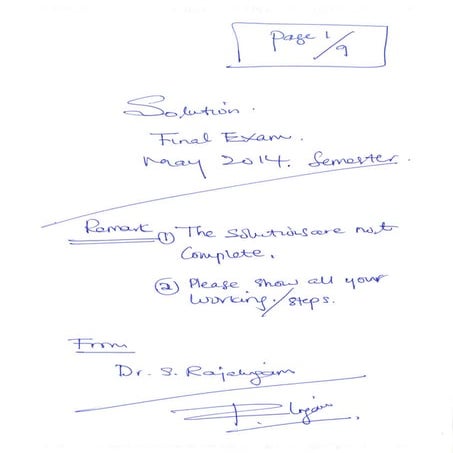 Page 1/9
Solution.
Final Exam.
May 2014. Semester.
Remark ① The solutions are not
Complete.
② Please show all your
working/steps.
From
Dr. S.